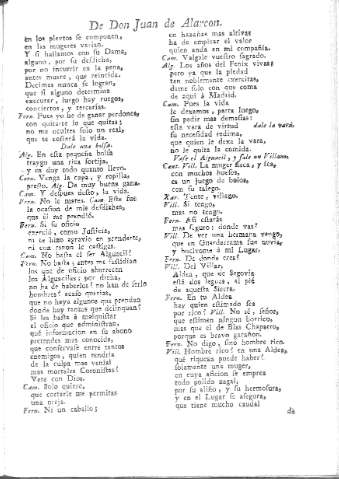 De Don Juan de Alarcon.
en los pleytos se componen,
en las mugeres varian.
Y si hallamos con su Dama,
alguno, por su desdicha,
por no incurrir en la pena,
antes muere, que reincida.
Dezimas nunca se logran,
que si alguno determina
executar, luego hay ruegos,
conciertos, y tercerias.
Fern. Pues yo he de ganar perdones
con quitaros lo que quita;
no me oculteis solo un real,
que os costará la vida.
Dale una bolsa.
Alg. En esta pequeña bolsa
traygo una rica sortija,
y os doy todo quanto llevo.
Cam. Venga la capa, y ropilla,
presto. Alg. De muy buena gana.
Cam. Y despues desto, la vida.
Fern. No le mates. Cam. Este fue
la ocasion de mis desdichas,
que él me prendió.
Fern. Si su oficio
exerció, como Justicia,
ni te hizo agravio en prenderte,
ni con razon le castigas.
Cam. No basta el ser Alguacil?
Fern. No basta; antes me fastidian
los que de oficio aborrecen
los Alguaciles: por dicha,
no ha de haberlos? no han de serlo
hombres? acaso querias,
que no haya algunos que prendan
donde hay tantos que delinquan?
Si les basta á malquistar
el oficio que administran,
qué informacion en su abono
pretendes mas conocida,
que conservarse entre tantos
enemigos, quien tendria
de la culpa mas venial
mas mortales Coronistas?
Vete con Dios.
Cam. Solo quiero,
que cortarle me permitas
una oreja.
Fern. Ni un cabello;
en hazañas mas altivas
ha de emplear el valor
quien anda en mi compañia.
Cam. Valgale vuestro sagrado.
Alg. Los años del Fenix vivas;
pero ya que la piedad
tan noblemente exercitas,
dame solo con que coma
de aquí á Madrid.
Cam. Pues la vida
le dexamos, parta luego,
sin pedir mas demasias:
esta vara de virtud dale la vara.
de necesidad redima,
que quien le dexa la vara,
no le quita la comida.
Vase el Alguacil, y sale un Villano.
Cant. Vill. La muger flaca, y sea,
con muchos huesos,
es un juego de bolos,
con su talego.
Xar. Tente, villano.
Vill. Si tengo,
mas no tengo.
Fern. Así estarás
mas seguro: donde vas?
Vill. De ver una hermana vengo,
que en Guadarrama fue novia,
y buelvome á mi Lugar.
Fern. De donde eres?
Vill. Del Villar,
Aldea, que de Segovia
está dos leguas, al pie
de aquesta Sierra.
Fern. En tu Aldea
hay quien estimado sea
por rico? Vill. No sé, señor,
que estimen alguno borrico,
mas que el de Blas Chaparro,
porque es bravo garañon.
Fern. No digo, sino hombre rico.
Vill. Hombre rico? en una Aldea,
qué riqueza puede haber?
solamente una muger,
en cuya aficion se emplea
todo polido zagal,
por su aliño, y su hermosura,
y en el Lugar se asegura,
que tiene mucho caudal
da